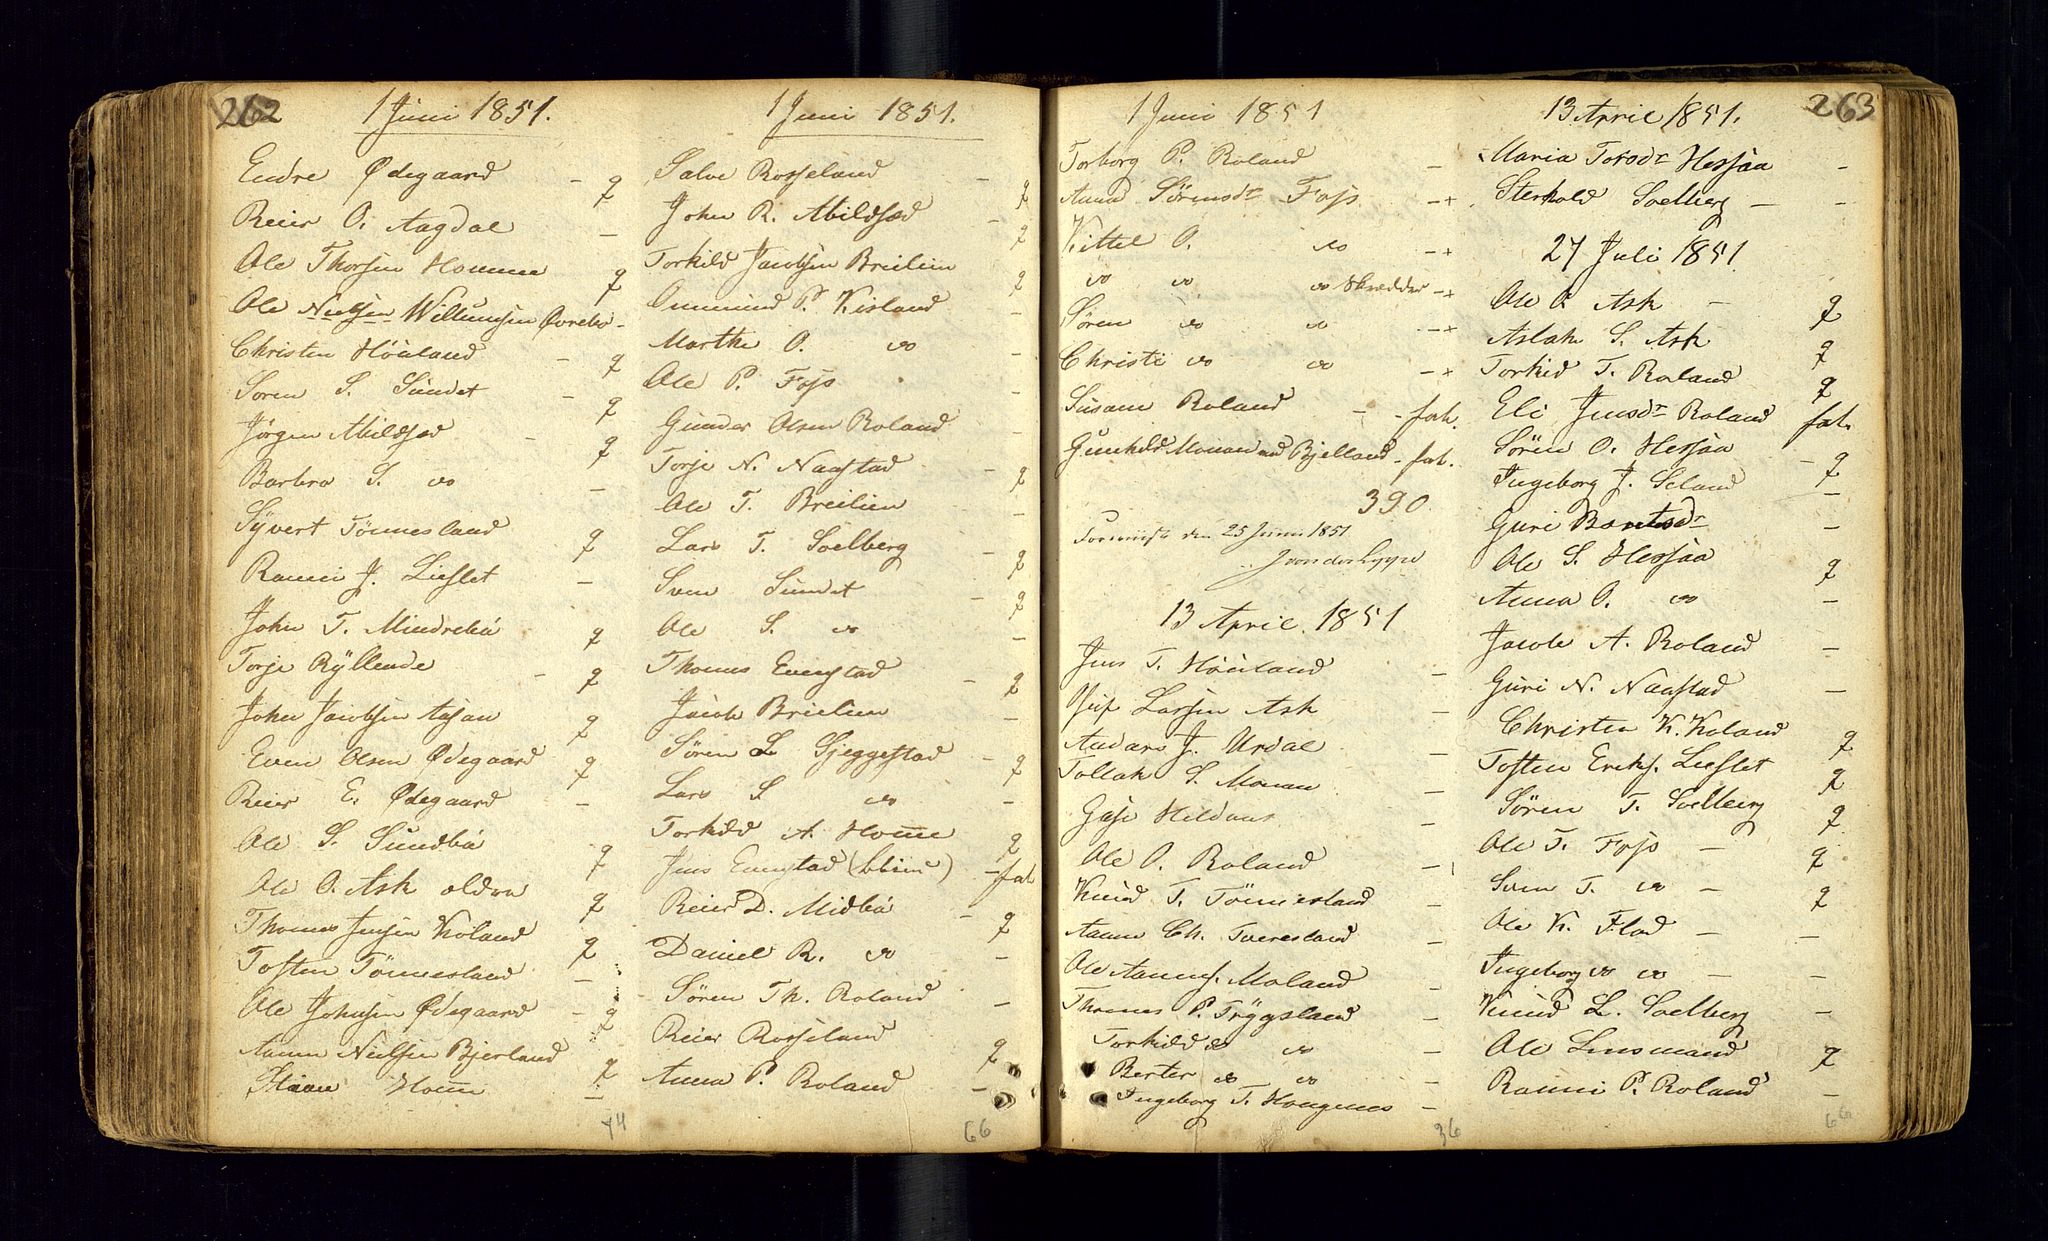 262
1 Juni 1851.
Endre Ødegaard - q
Reier O. Aagdal -
Ole Thorsen Homme q
Ole Nielsen Willumsen Øvrebø -
Christen Höiland - q
Soren S. Sundet - q
Jörgen Abildsød - q
Barbro S. do -
Syvert Tönnesland q
Ranni J. Lieslet -
John T. Mindrebö q
Torje Ryllende - q
John Jacobsen Aasan q
Even Olsen Ødegaard q
Reier E. Ødegaard -
Ole S. Sundbö q
Ole O. Ask oldra q
Thomas Jensen Koland q
Tosten Tönnesland -
Ole Johnsen Ødegaard - q
Aanen Nielsen Bjerland q
Homm -
74
1 Juni 1851.
Salve Rosseland - q
John R. Abildsød - q
Torkild Jacobsen Breilien q
Ommund P. Kisland -
Marthe O. do -
Ole P. Foss -
Gunder Olsen Roland -
Torje N. Naastad - q
Ole T. Breilien -
Lars T. Solberg - q
Sven Sundet - q
Ole S. do -
Thomas Evenstad - q
Jacob Breilien -
Sören L Gjeggestad - q
Lars S do -
Torkild A. Homme q
Jens Evenstad - fat
Reier D. Midbö - q
Daniel R. do -
Sören Th. Roland -
Reier Rosseland q
Anna P. Roland -
66
1 Juni 1851
Torborg P. Roland -
Anna Sörensdr Foss -+
Kittel O. do -+
do do do Skrædder -+
Sören do do -+
Christi do do -+
Susann Roland - - fat.
Gunhild Monan Bjelland - fat.
390.
den 25 Juni 1851
J von der Lippe
13 April 1851
Jens T. Höiland -
Larsen Ask -
Anders J. Urdal -
Tollak S. Monan -
-
Ole O. Roland -
Knud T. Tönnesland -
Aanen Ch. Tveresland -
Ole Aannes. Moland -
Thomas P. Tryggsland -
Torkild do do -
Berter do do -
Ingeborg T. Haugenes -
36
263
13 April 1851.
Maria Torsdr Hessaa -
Sterkold Solberg - -
27 Juli 1851
Ole O. Ask - q
Aslak S. Ask q
Torkild T. Roland q
Eli Jensdr Roland fat.
Sören O. Hessaa - q
Ingeborg J. Seland -
Guri Berntsdr -
Ole S. Hessaa q
Anna O. do -
Jacob A. Roland -
Guri N. Naastad -
Christen K. Koland q
Tosten Eriks. Lieslet q
Sören T. Solberg q
Ole T. Foss - q
Sven T. do - q
Ole K. Flod - -
Ingeborg do do - -
Knud L. Solberg -
Ole Lensmand q
Ranni P. Roland -
66